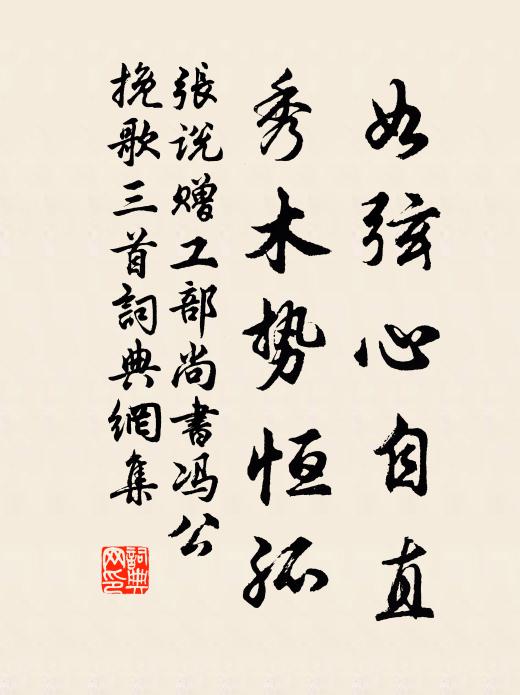 如弦心自直
秀木势恒孤
張说赠工部尚書冯公
挽歌三首詞典網集
詞典网印